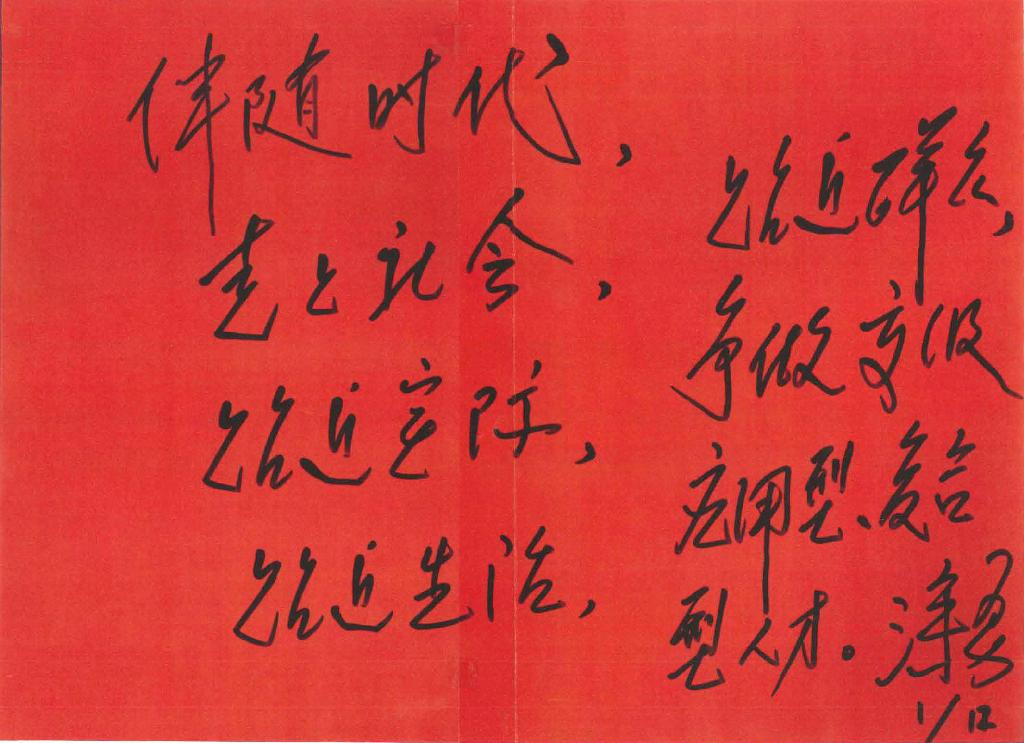 伴随时代，
走上社会，
贴近实际，
贴近生活，
贴近群众，
争做高级
应用型、复合
型人才。
1/12